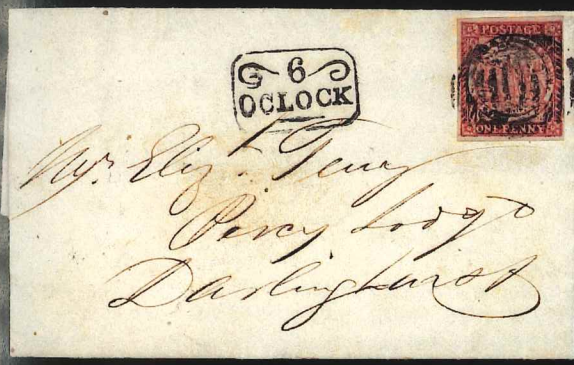 POSTAGE
ONE PENNY
6
OCLOCK
Mrs. Eliz.th Terry
Percy Lodge
Darlinghurst